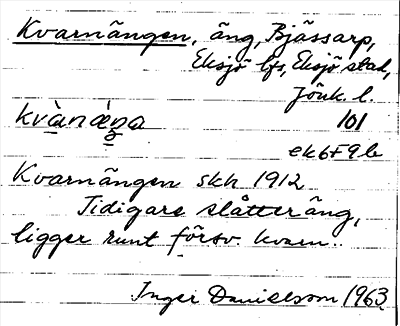 Kvarnängen, äng, Bjässarp,
Eksjö lfs, Eksjö stad,
Jönk. l.
kvànæ̀ŋa 101
ek6F9b
Kvarnängen skh 1912
Tidigare slåtteräng,
ligger runt försv. kvarn.
Inger Danielsson 1963